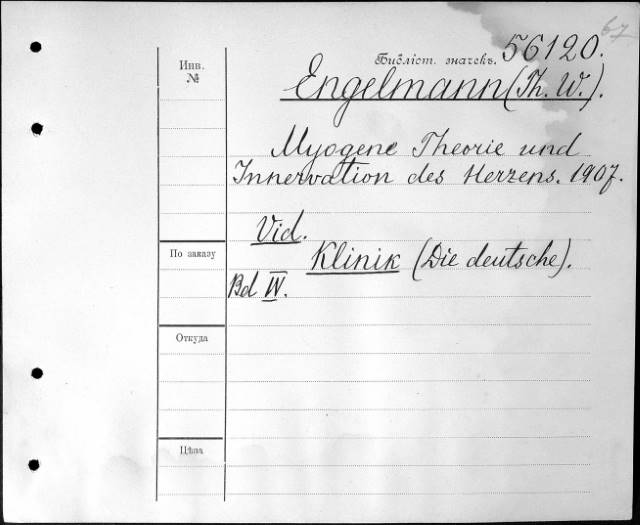 67
Библіот. значекъ. 56120.
Инв.
№
Engelmann (Th. W.).
Myogene Theorie und
Innervation des Herzens. 1907.
Vid.
Klinik (Die deutsche).
По заказу
Bd IV.
Откуда
Цѣна